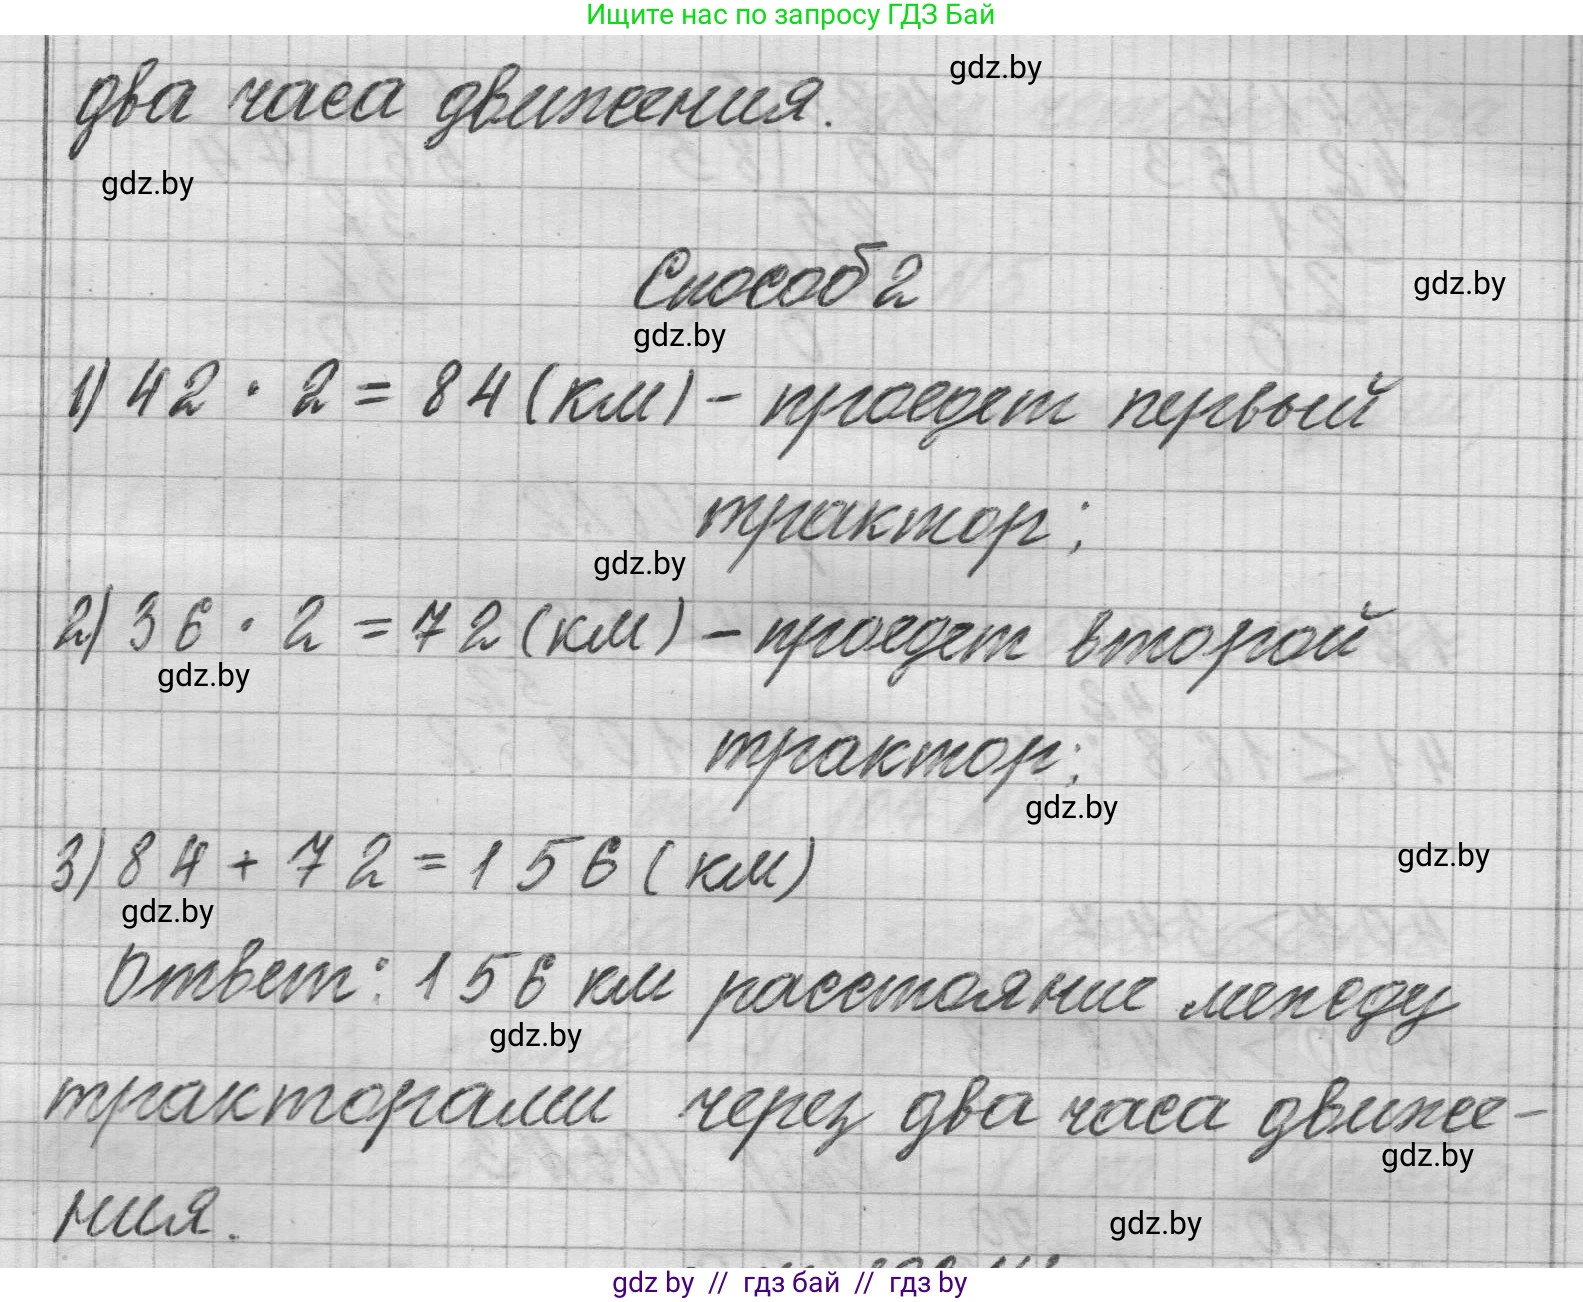 Ищите нас по запросу ГДЗ Бай
два часа движения.
gdz.by
gdz.by
Способ 2
gdz.by
gdz.by
1) 42 · 2 = 84 (км) - проедет первый
трактор;
gdz.by
2) 36 · 2 = 72 (км) - проедет второй
gdz.by
трактор;
gdz.by
3) 84 + 72 = 156 (км)
gdz.by
gdz.by
Ответ: 156 км расстояние между
gdz.by
тракторами через два часа движе-
gdz.by
ния.
gdz.by
gdz by // гдз бай // гдз by